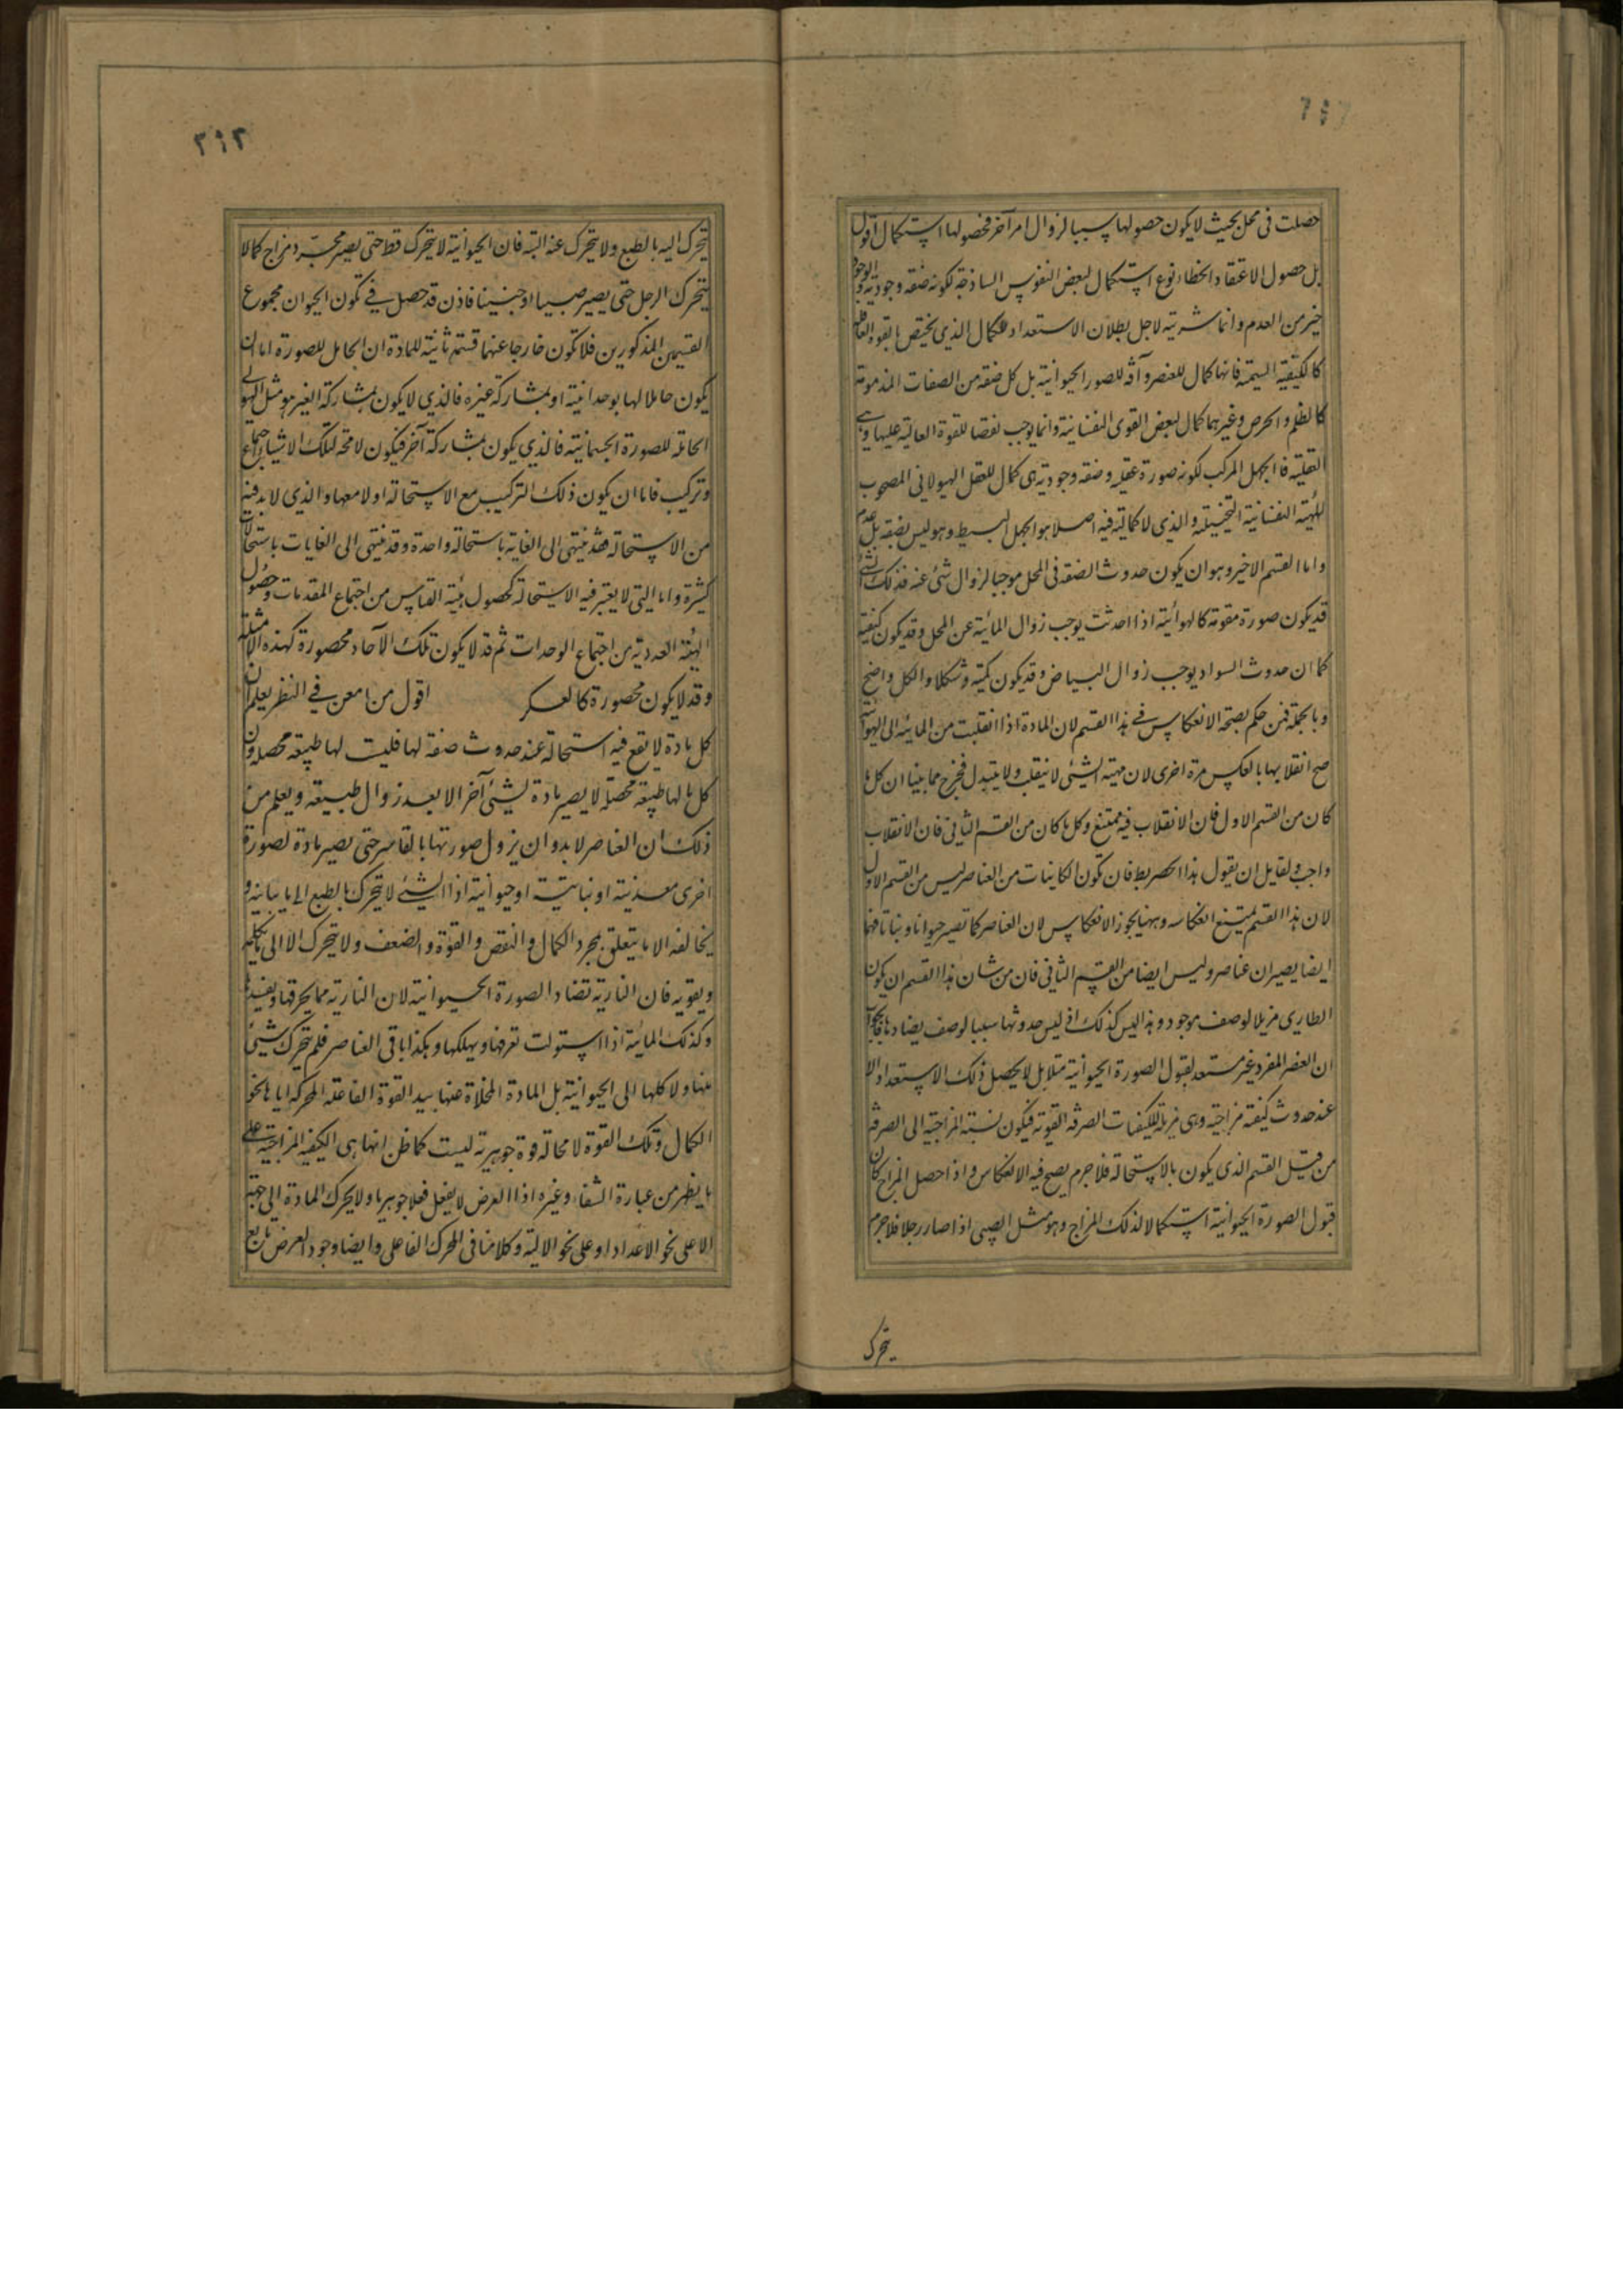 حصلت فى محل بحيث لا يكون حصولها سببا لزوال امر آخر فحصولها استكمال اقول
بل حصول الاعتقاد الخطاء نوع استكمال لبعض النفوس الساذجة لكونه صفة وجودية والوجود
خير من العدم وانما شريته لاجل بطلان الاستعداد للكمال الذى يختص بالقوة العاقلة
كالكيفية السمية فانها كمال للعنصر وآفة للصور الحيوانية بل كل صفة من الصفات المذمومة
كالظلم والحرص وغيرهما كمال لبعض القوى النفسانية وانما يوجب نقصا للقوة العالية عليها وهى
العقلية فالجهل المركب لكونه صورة عقلية وصفة وجودية هى كمال للعقل الهيولانى المصحوب
للهيئة النفسانية التخيلية والذى لا كمالية فيه اصلا هو الجهل البسيط وهو ليس بصفة بل عدم
واما القسم الاخير وهو ان يكون حدوث الصفة فى المحل موجبا لزوال شئ عنه فذلك الشئ
قد يكون صورة مقومة كالهوائية اذا حدثت يوجب زوال المائية عن المحل وقد يكون كيفية
كما ان حدوث السواد يوجب زوال البياض وقد يكون كمية وشكلا والكل واضح
وبالجملة فمن حكم بصحة الانعكاس فى هذا القسم لان المادة اذا انقلبت من المائية الى الهوائية
صح انقلابها بالعكس مرة اخرى لان مهية الشئ لا ينقلب ولا يتبدل فخرج مما بينا ان كل ما
كان من القسم الاول فان الانقلاب فيه ممتنع وكل ما كان من القسم الثانى فان الانقلاب
واجب ولقايل ان يقول هذا الحصر بط فان تكون الكاينات من العناصر ليس من القسم الاول
لان هذا القسم يمتنع انعكاسه وههنا يجوز الانعكاس لان العناصر كما تصير حيوانا ونباتا فهما
ايضا يصيران عناصر وليس ايضا من القسم الثانى فان من شان هذا القسم ان يكون
الطارى مزيلا لوصف موجود وهذا ليس كذلك اذ ليس حدوثها سببا لوصف يضادها فالجواب
ان العنصر المفرد غير مستعد لقبول الصورة الحيوانية مثلا بل لا يحصل ذلك الاستعداد الا
عند حدوث كيفية مزاجية وهى مزيلة للكيفيات الصرفة القوية فيكون نسبة المزاجية الى الصرفة
من قبيل القسم الذى يكون بالاستحالة فلا جرم يصح فيه الانعكاس واذا حصل المزاج كان
قبول الصورة الحيوانية استكمالا لذلك المزاج وهو مثل الصبى اذا صار رجلا فلا جرم
يتحرك
٣٩٣
يتحرك اليه بالطبع ولا يتحرك عنه البتة فان الحيوانية لا يتحرك قط حتى يصير مجرد مزاج كما لا
يتحرك الرجل حتى يصير صبيا او جنينا فاذن قد حصل فى تكون الحيوان مجموع
القسمين المذكورين فلا تكون خارجا عنهما قسمة ثانية للمادة ان الحامل للصورة اما ان
يكون حاملا لها بوحدانية او بمشاركة غيره فالذى لا يكون بمشاركة الغير هو مثل الهيولى
الحاملة للصورة الجسمانية فالذى يكون بمشاركة آخر فيكون لا محة لتلك الاشياء اجتماع
وتركيب فاما ان يكون ذلك التركيب مع الاستحالة او لا معها والذى لا بد فيه
من الاستحالة فقد ينتهى الى الغاية باستحالة واحدة وقد ينتهى الى الغايات باستحالات
كثيرة واما التى لا يعتبر فيه الاستحالة كحصول هيئة القياس من اجتماع المقدمات وحصول
الهيئة العددية من اجتماع الوحدات ثم قد لا يكون تلك الآحاد محصورة كهذه الامثلة
وقد لا يكون محصورة كالعسكر اقول من امعن فى النظر يعلم ان
كل مادة لا يقع فيه استحالة عند حدوث صفة لها فليست لها طبيعة محصلة وان
كل ما لها طبيعة محصلة لا يصير مادة لشئ آخر الا بعد زوال طبيعته ويعلم من
ذلك ان العناصر لا بد وان يزول صورتها بالقاسر حتى يصير مادة لصورة
اخرى معدنية او نباتية او حيوانية اذ الشئ لا يتحرك بالطبع الى ما يباينه و
يخالفه الا ما يتعلق بمجرد الكمال والنقص والقوة والضعف ولا يتحرك الا الى ما يكمله
ويقويه فان النارية تضاد الصورة الحيوانية لان النارية مما يحرقها ويفسدها
وكذلك المائية اذا استولت تعرفها ويهلكها وهكذا باقى العناصر فلم يتحرك شئ
منها ولا كلها الى الحيوانية بل المادة المخلاة عنها بيد القوة الفاعلة المحركة اياها نحو
الكمال وتلك القوة لا محالة قوة جوهرية ليست كما ظن انها هى الكيفية المزاجية على
ما يظهر من عبارة الشفاء وغيره اذ العرض لا يفعل فعلا جوهريا ولا يحرك المادة الى جهة
الا على نحو الاعداد او على نحو الالية وكلامنا فى المحرك الفاعلى وايضا وجود العرض تابع